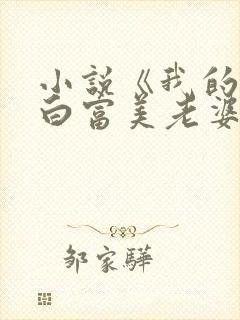 小説《我的
白富美老婆
邹家驊